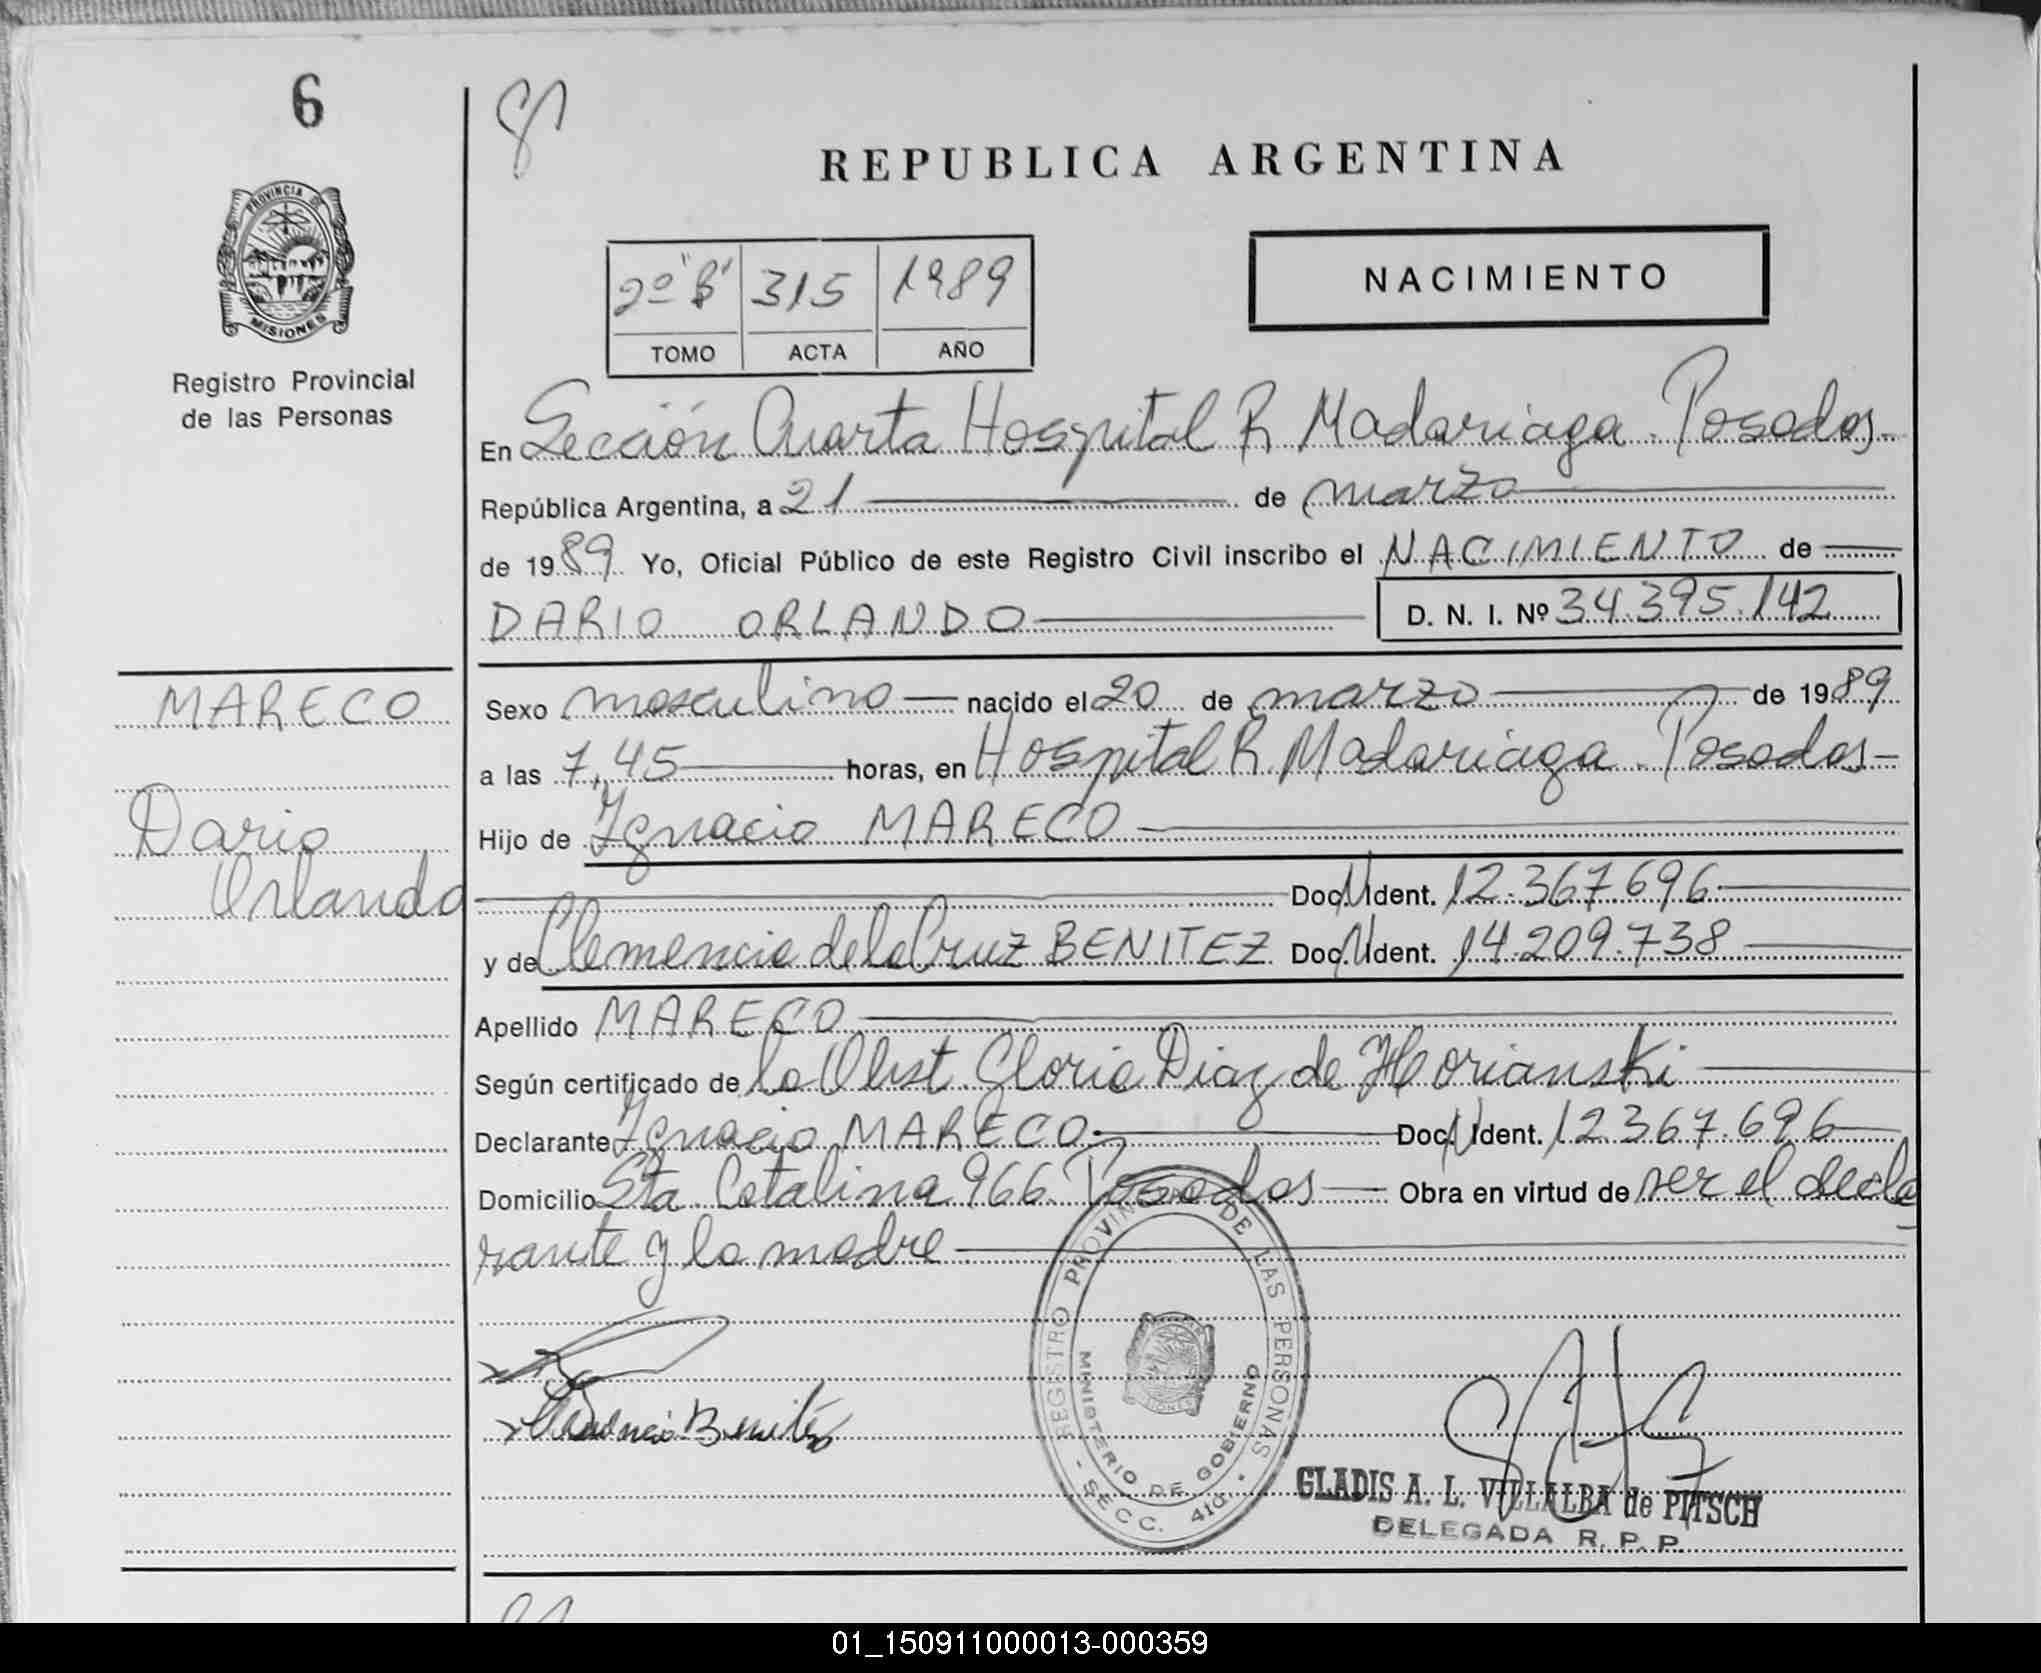 6
PROVINCIA DE
MISIONES
Registro Provincial
de las Personas
REPUBLICA ARGENTINA
2º "B" 315 1989
TOMO ACTA AÑO
NACIMIENTO
En Sección Cuarta Hospital R Madariaga. Posadas.
República Argentina, a 21 de marzo
de 1989 Yo, Oficial Público de este Registro Civil inscribo el NACIMIENTO de
DARIO ORLANDO D. N. I. Nº 34.395.142
MARECO
Dario
Orlando
Sexo masculino nacido el 20 de marzo de 1989
a las 7,45 horas, en Hospital R Madariaga. Posadas
Hijo de Ignacio MARECO
Doc. N Ident. 12.367.696
y de Clemencia de la Cruz BENITEZ Doc. N Ident. 14.209.738
Apellido MARECO
Según certificado de la Obst. Gloria Diaz de Horianski
Declarante Ignacio MARECO Doc. N Ident. 12.367.696
Domicilio Sta. Catalina 966. Posadas Obra en virtud de ser el decla
rante y la madre
REGISTRO PROVINCIAL DE LAS PERSONAS
MINISTERIO DE GOBIERNO
- SECC. 4ta. -
Benitez
GLADIS A. L. VILLALBA de PITSCH
DELEGADA R. P. P.
01_150911000013-000359